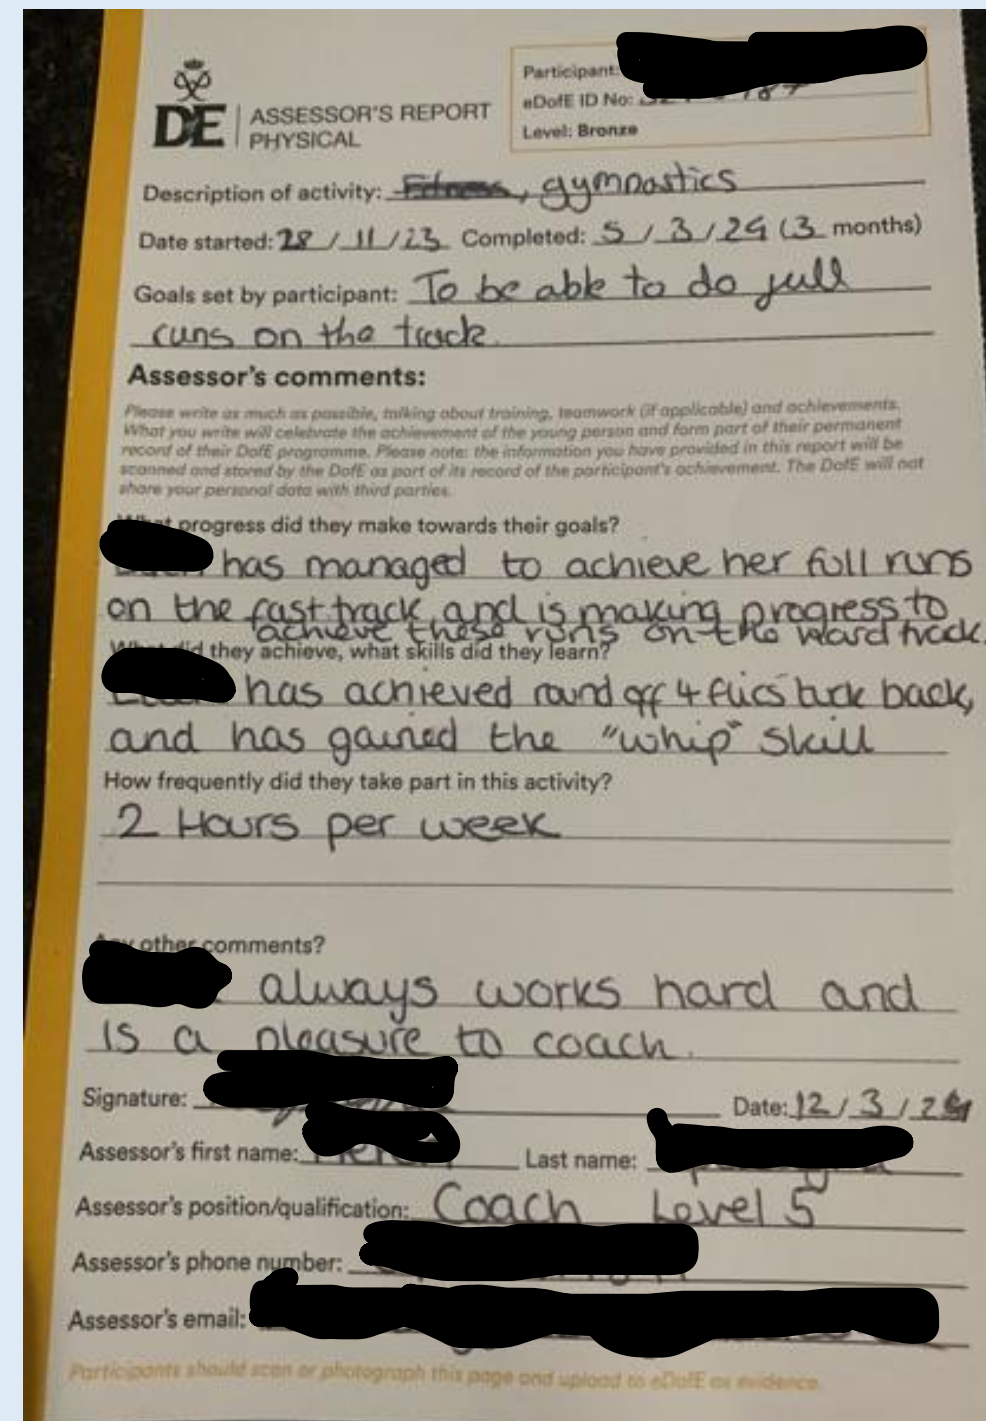 DE
ASSESSOR'S REPORT
PHYSICAL
Participant:
eDofE ID No:
Level: Bronze
Description of activity: Fitness, gymnastics
Date started: 28 / 11 / 23 Completed: 5 / 3 / 24 (3 months)
Goals set by participant: To be able to do full
runs on the track.
Assessor's comments:
Please write as much as possible, talking about training, teamwork (if applicable) and achievements.
What you write will celebrate the achievement of the young person and form part of their permanent
record of their DofE programme. Please note: the information you have provided in this report will be
scanned and stored by the DofE as part of its record of the participant's achievement. The DofE will not
share your personal data with third parties.
What progress did they make towards their goals?
has managed to achieve her full runs
on the fast track, and is making progress to
achieve these runs on the hard track.
What did they achieve, what skills did they learn?
has achieved round off 4 flics tuck back,
and has gained the "whip" skill
How frequently did they take part in this activity?
2 Hours per week
Any other comments?
always works hard and
is a pleasure to coach.
Signature:
Date: 12 / 3 / 24
Assessor's first name:
Last name:
Assessor's position/qualification: Coach Level 5
Assessor's phone number:
Assessor's email:
Participants should scan or photograph this page and upload to eDofE as evidence.